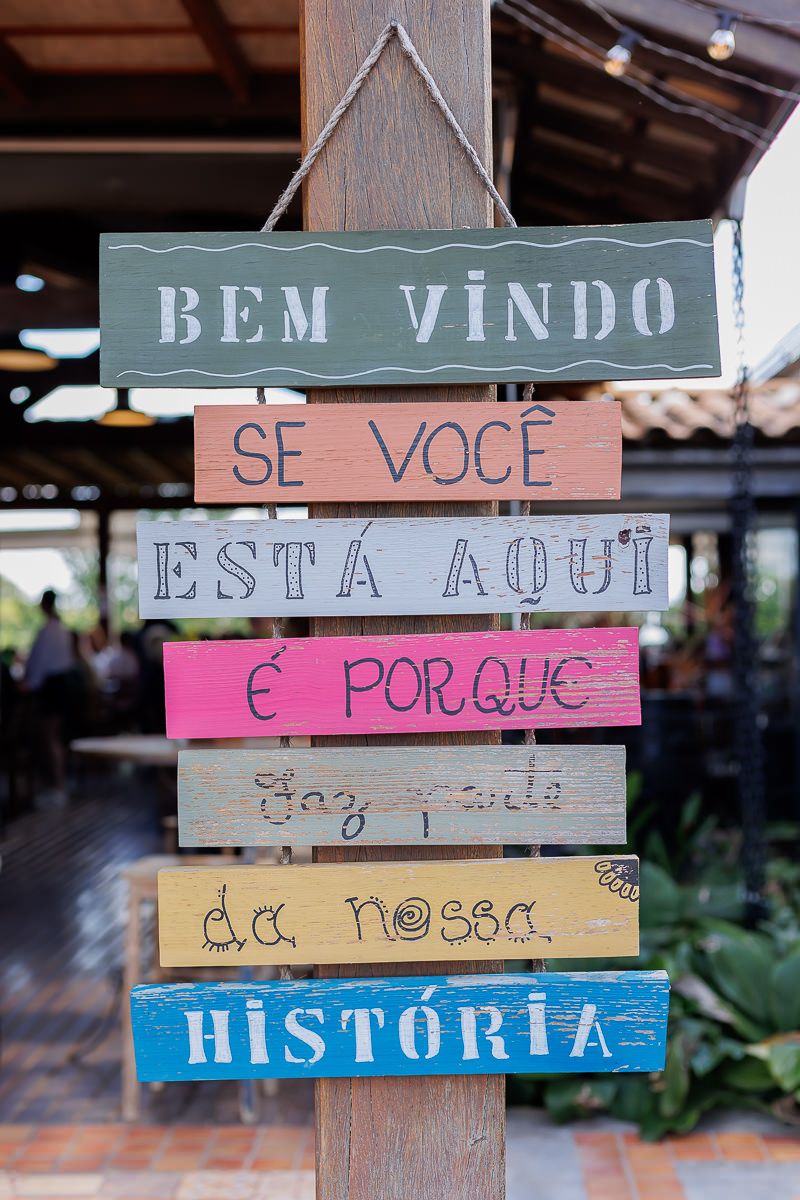 BEM VINDO
SE VOCÊ
ESTÁ AQUI
É PORQUE
faz parte
da nossa
HISTÓRIA